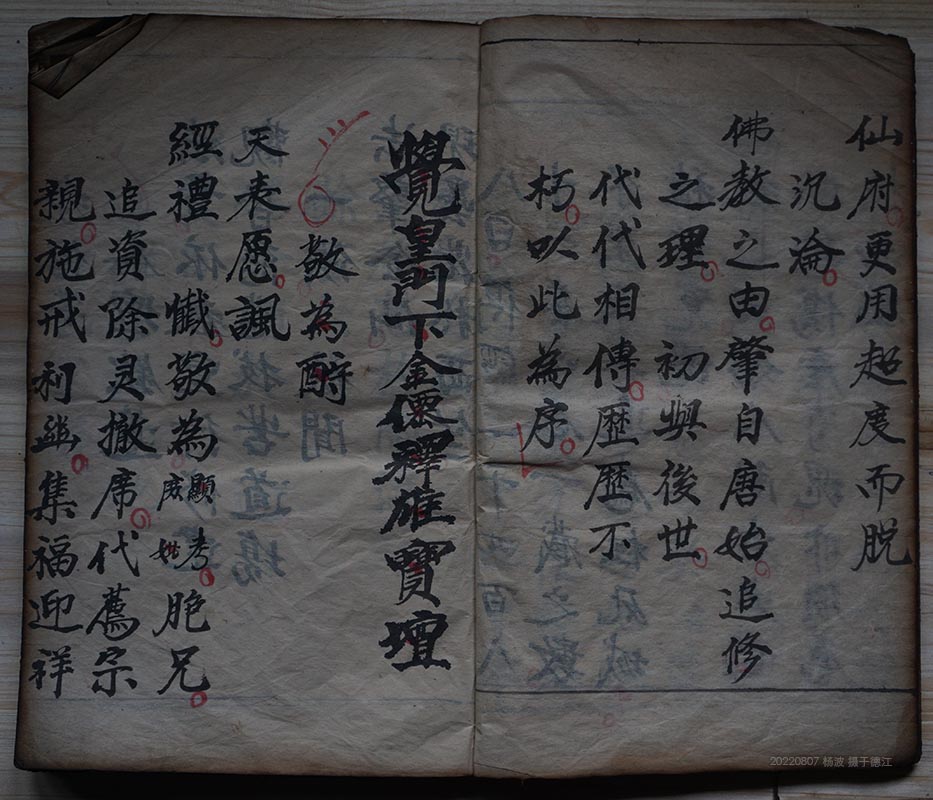 仙府更用超度而脱
沉淪
佛教之由肇自唐始追修
之理初與後世
代代相傳歷歷不
朽以此為序
覺皇門下金僊釋雄寶壇
敬為酧
天奉愿諷
經禮懺敬為顯考庶妣胞兄
追資除灵撤席代薦宗
親施戒利幽集福迎祥
20220807 杨波 摄于德江